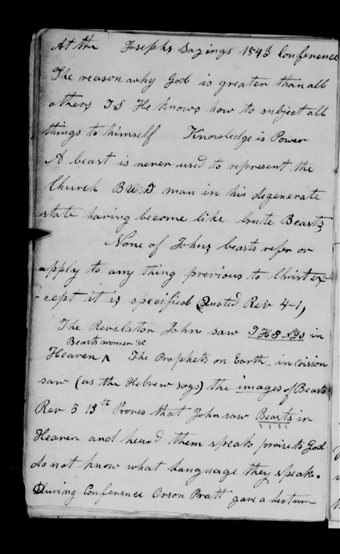 At the Josephs Sayings 1843 Conference
The reason why God is greater than all
others IS He knows how to subject all
things to himself Knowledge is Power
A beast is never used to represent the
Church BUT man in his degenerate
state having become like brute Beasts
None of Johns beasts refer or
apply to any thing previous to Christ ex-
-cept it is specified Quoted Rev 4-1,
The Revelator John saw THINGS in
Beasts women &c
Heaven ^ The Prophets on Earth in vision
saw (as the Hebrew says) the images of Beasts
Rev 5 13th Proves that John saw Beasts in
Heaven and heard them speak praise to God
do not know what language they speak.
During Conference Orson Pratt gave a lecture